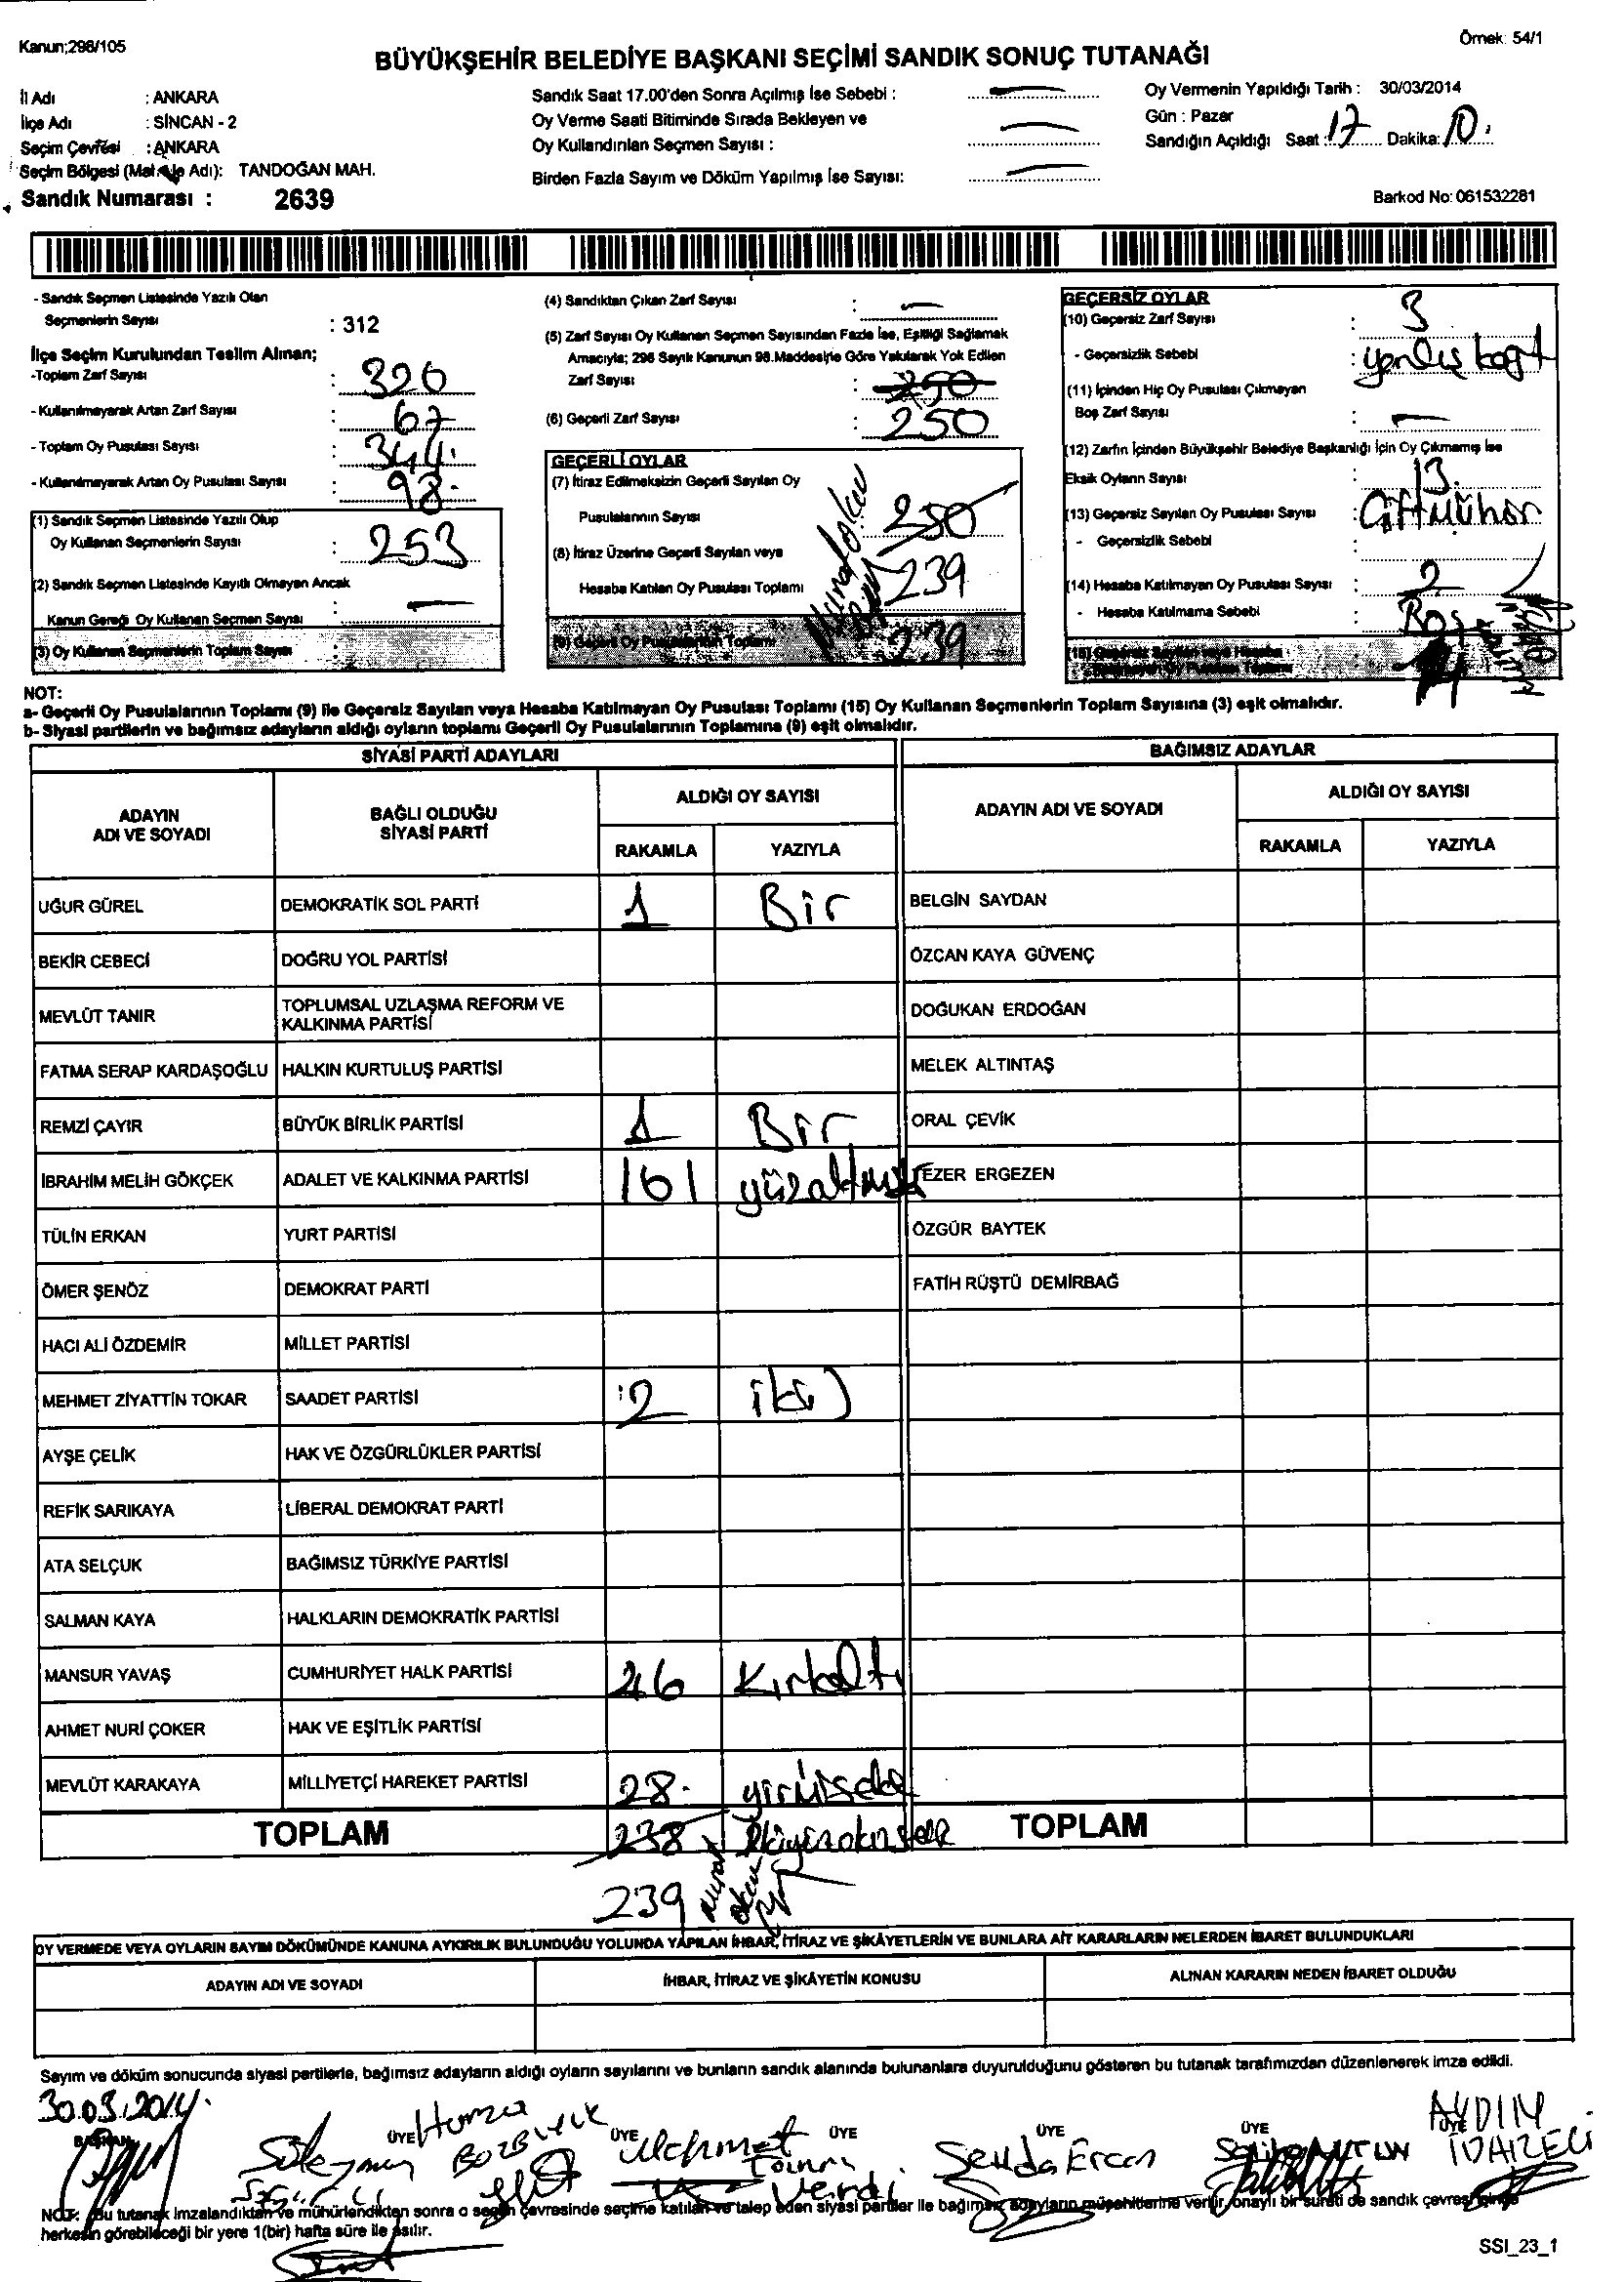 Kanun;298/105
Örnek: 54/1
BÜYÜKŞEHİR BELEDİYE BAŞKANI SEÇİMİ SANDIK SONUÇ TUTANAĞI
İl Adı : ANKARA
İlçe Adı : SİNCAN - 2
Seçim Çevresi : ANKARA
Seçim Bölgesi (Mah. Adı): TANDOĞAN MAH.
Sandık Numarası : 2639
Sandık Saat 17.00'den Sonra Açılmış İse Sebebi : —
Oy Verme Saati Bitiminde Sırada Bekleyen ve
Oy Kullandırılan Seçmen Sayısı : —
Birden Fazla Sayım ve Döküm Yapılmış İse Sayısı: —
Oy Vermenin Yapıldığı Tarih : 30/03/2014
Gün : Pazar
Sandığın Açıldığı Saat : 17 Dakika: 10.
Barkod No: 061532281
- Sandık Seçmen Listesinde Yazılı Olan
Seçmenlerin Sayısı : 312
İlçe Seçim Kurulundan Teslim Alınan;
-Toplam Zarf Sayısı : 320
- Kullanılmayarak Artan Zarf Sayısı : 67
- Toplam Oy Pusulası Sayısı : 344.
- Kullanılmayarak Artan Oy Pusulası Sayısı : 98.
(1) Sandık Seçmen Listesinde Yazılı Olup
Oy Kullanan Seçmenlerin Sayısı : 253
(2) Sandık Seçmen Listesinde Kayıtlı Olmayan Ancak
Kanun Gereği Oy Kullanan Seçmen Sayısı : —
(3) Oy Kullanan Seçmenlerin Toplam Sayısı :
(4) Sandıktan Çıkan Zarf Sayısı : —
(5) Zarf Sayısı Oy Kullanan Seçmen Sayısından Fazla İse, Eşitliği Sağlamak
Amacıyla; 298 Sayılı Kanunun 98.Maddesine Göre Yakılarak Yok Edilen
Zarf Sayısı : 250
(6) Geçerli Zarf Sayısı : 250
GEÇERLİ OYLAR
(7) İtiraz Edilmeksizin Geçerli Sayılan Oy
Pusulalarının Sayısı 250
(8) İtiraz Üzerine Geçerli Sayılan veya
Hesaba Katılan Oy Pusulası Toplamı 239
(9) Geçerli Oy Pusulalarının Toplamı 239
GEÇERSİZ OYLAR
(10) Geçersiz Zarf Sayısı : 3
- Geçersizlik Sebebi : yanlış kağıt
(11) İçinden Hiç Oy Pusulası Çıkmayan
Boş Zarf Sayısı : —
(12) Zarfın İçinden Büyükşehir Belediye Başkanlığı İçin Oy Çıkmamış İse
Eksik Oyların Sayısı : 13.
(13) Geçersiz Sayılan Oy Pusulası Sayısı : Çift Mühür
- Geçersizlik Sebebi :
(14) Hesaba Katılmayan Oy Pusulası Sayısı : 2
- Hesaba Katılmama Sebebi : Boş
(15) Geçersiz Sayılan veya Hesaba
Katılmayan Oy Pusulası Toplamı :
NOT:
a- Geçerli Oy Pusulalarının Toplamı (9) ile Geçersiz Sayılan veya Hesaba Katılmayan Oy Pusulası Toplamı (15) Oy Kullanan Seçmenlerin Toplam Sayısına (3) eşit olmalıdır.
b- Siyasi partilerin ve bağımsız adayların aldığı oyların toplamı Geçerli Oy Pusulalarının Toplamına (9) eşit olmalıdır.
SİYASİ PARTİ ADAYLARI
ADAYIN ADI VE SOYADI
BAĞLI OLDUĞU SİYASİ PARTİ
ALDIĞI OY SAYISI
RAKAMLA YAZIYLA
UĞUR GÜREL DEMOKRATİK SOL PARTİ 1 Bir
BEKİR CEBECİ DOĞRU YOL PARTİSİ
MEVLÜT TANIR TOPLUMSAL UZLAŞMA REFORM VE KALKINMA PARTİSİ
FATMA SERAP KARDAŞOĞLU HALKIN KURTULUŞ PARTİSİ
REMZİ ÇAYIR BÜYÜK BİRLİK PARTİSİ 1 Bir
İBRAHİM MELİH GÖKÇEK ADALET VE KALKINMA PARTİSİ 161
TÜLİN ERKAN YURT PARTİSİ
ÖMER ŞENÖZ DEMOKRAT PARTİ
HACI ALİ ÖZDEMİR MİLLET PARTİSİ
MEHMET ZİYATTİN TOKAR SAADET PARTİSİ 2 iki
AYŞE ÇELİK HAK VE ÖZGÜRLÜKLER PARTİSİ
REFİK SARIKAYA LİBERAL DEMOKRAT PARTİ
ATA SELÇUK BAĞIMSIZ TÜRKİYE PARTİSİ
SALMAN KAYA HALKLARIN DEMOKRATİK PARTİSİ
MANSUR YAVAŞ CUMHURİYET HALK PARTİSİ 46 Kırkaltı
AHMET NURİ ÇOKER HAK VE EŞİTLİK PARTİSİ
MEVLÜT KARAKAYA MİLLİYETÇİ HAREKET PARTİSİ 28.
TOPLAM 238
239
BAĞIMSIZ ADAYLAR
ADAYIN ADI VE SOYADI
ALDIĞI OY SAYISI
RAKAMLA YAZIYLA
BELGİN SAYDAN
ÖZCAN KAYA GÜVENÇ
DOĞUKAN ERDOĞAN
MELEK ALTINTAŞ
ORAL ÇEVİK
EZER ERGEZEN
ÖZGÜR BAYTEK
FATİH RÜŞTÜ DEMİRBAĞ
TOPLAM
OY VERMEDE VEYA OYLARIN SAYIM DÖKÜMÜNDE KANUNA AYKIRILIK BULUNDUĞU YOLUNDA YAPILAN İHBAR, İTİRAZ VE ŞİKÂYETLERİN VE BUNLARA AİT KARARLARIN NELERDEN İBARET BULUNDUKLARI
ADAYIN ADI VE SOYADI İHBAR, İTİRAZ VE ŞİKÂYETİN KONUSU ALINAN KARARIN NEDEN İBARET OLDUĞU
Sayım ve döküm sonucunda siyasi partilerle, bağımsız adayların aldığı oyların sayılarını ve bunların sandık alanında bulunanlara duyurulduğunu gösteren bu tutanak tarafımızdan düzenlenerek imza edildi.
30.03.2014.
BAŞKAN ÜYE ÜYE ÜYE ÜYE ÜYE ÜYE
Süleyman Hamza Mehmet Sevda Ercan AYDIN
NOT: Bu tutanak imzalandıktan ve mühürlendikten sonra o seçim çevresinde seçime katılan ve talep eden siyasi partiler ile bağımsız adayların müşahitlerine verilir, onaylı bir sureti de sandık çevresinde
herkesin görebileceği bir yere 1(bir) hafta süre ile asılır.
SSI_23_1